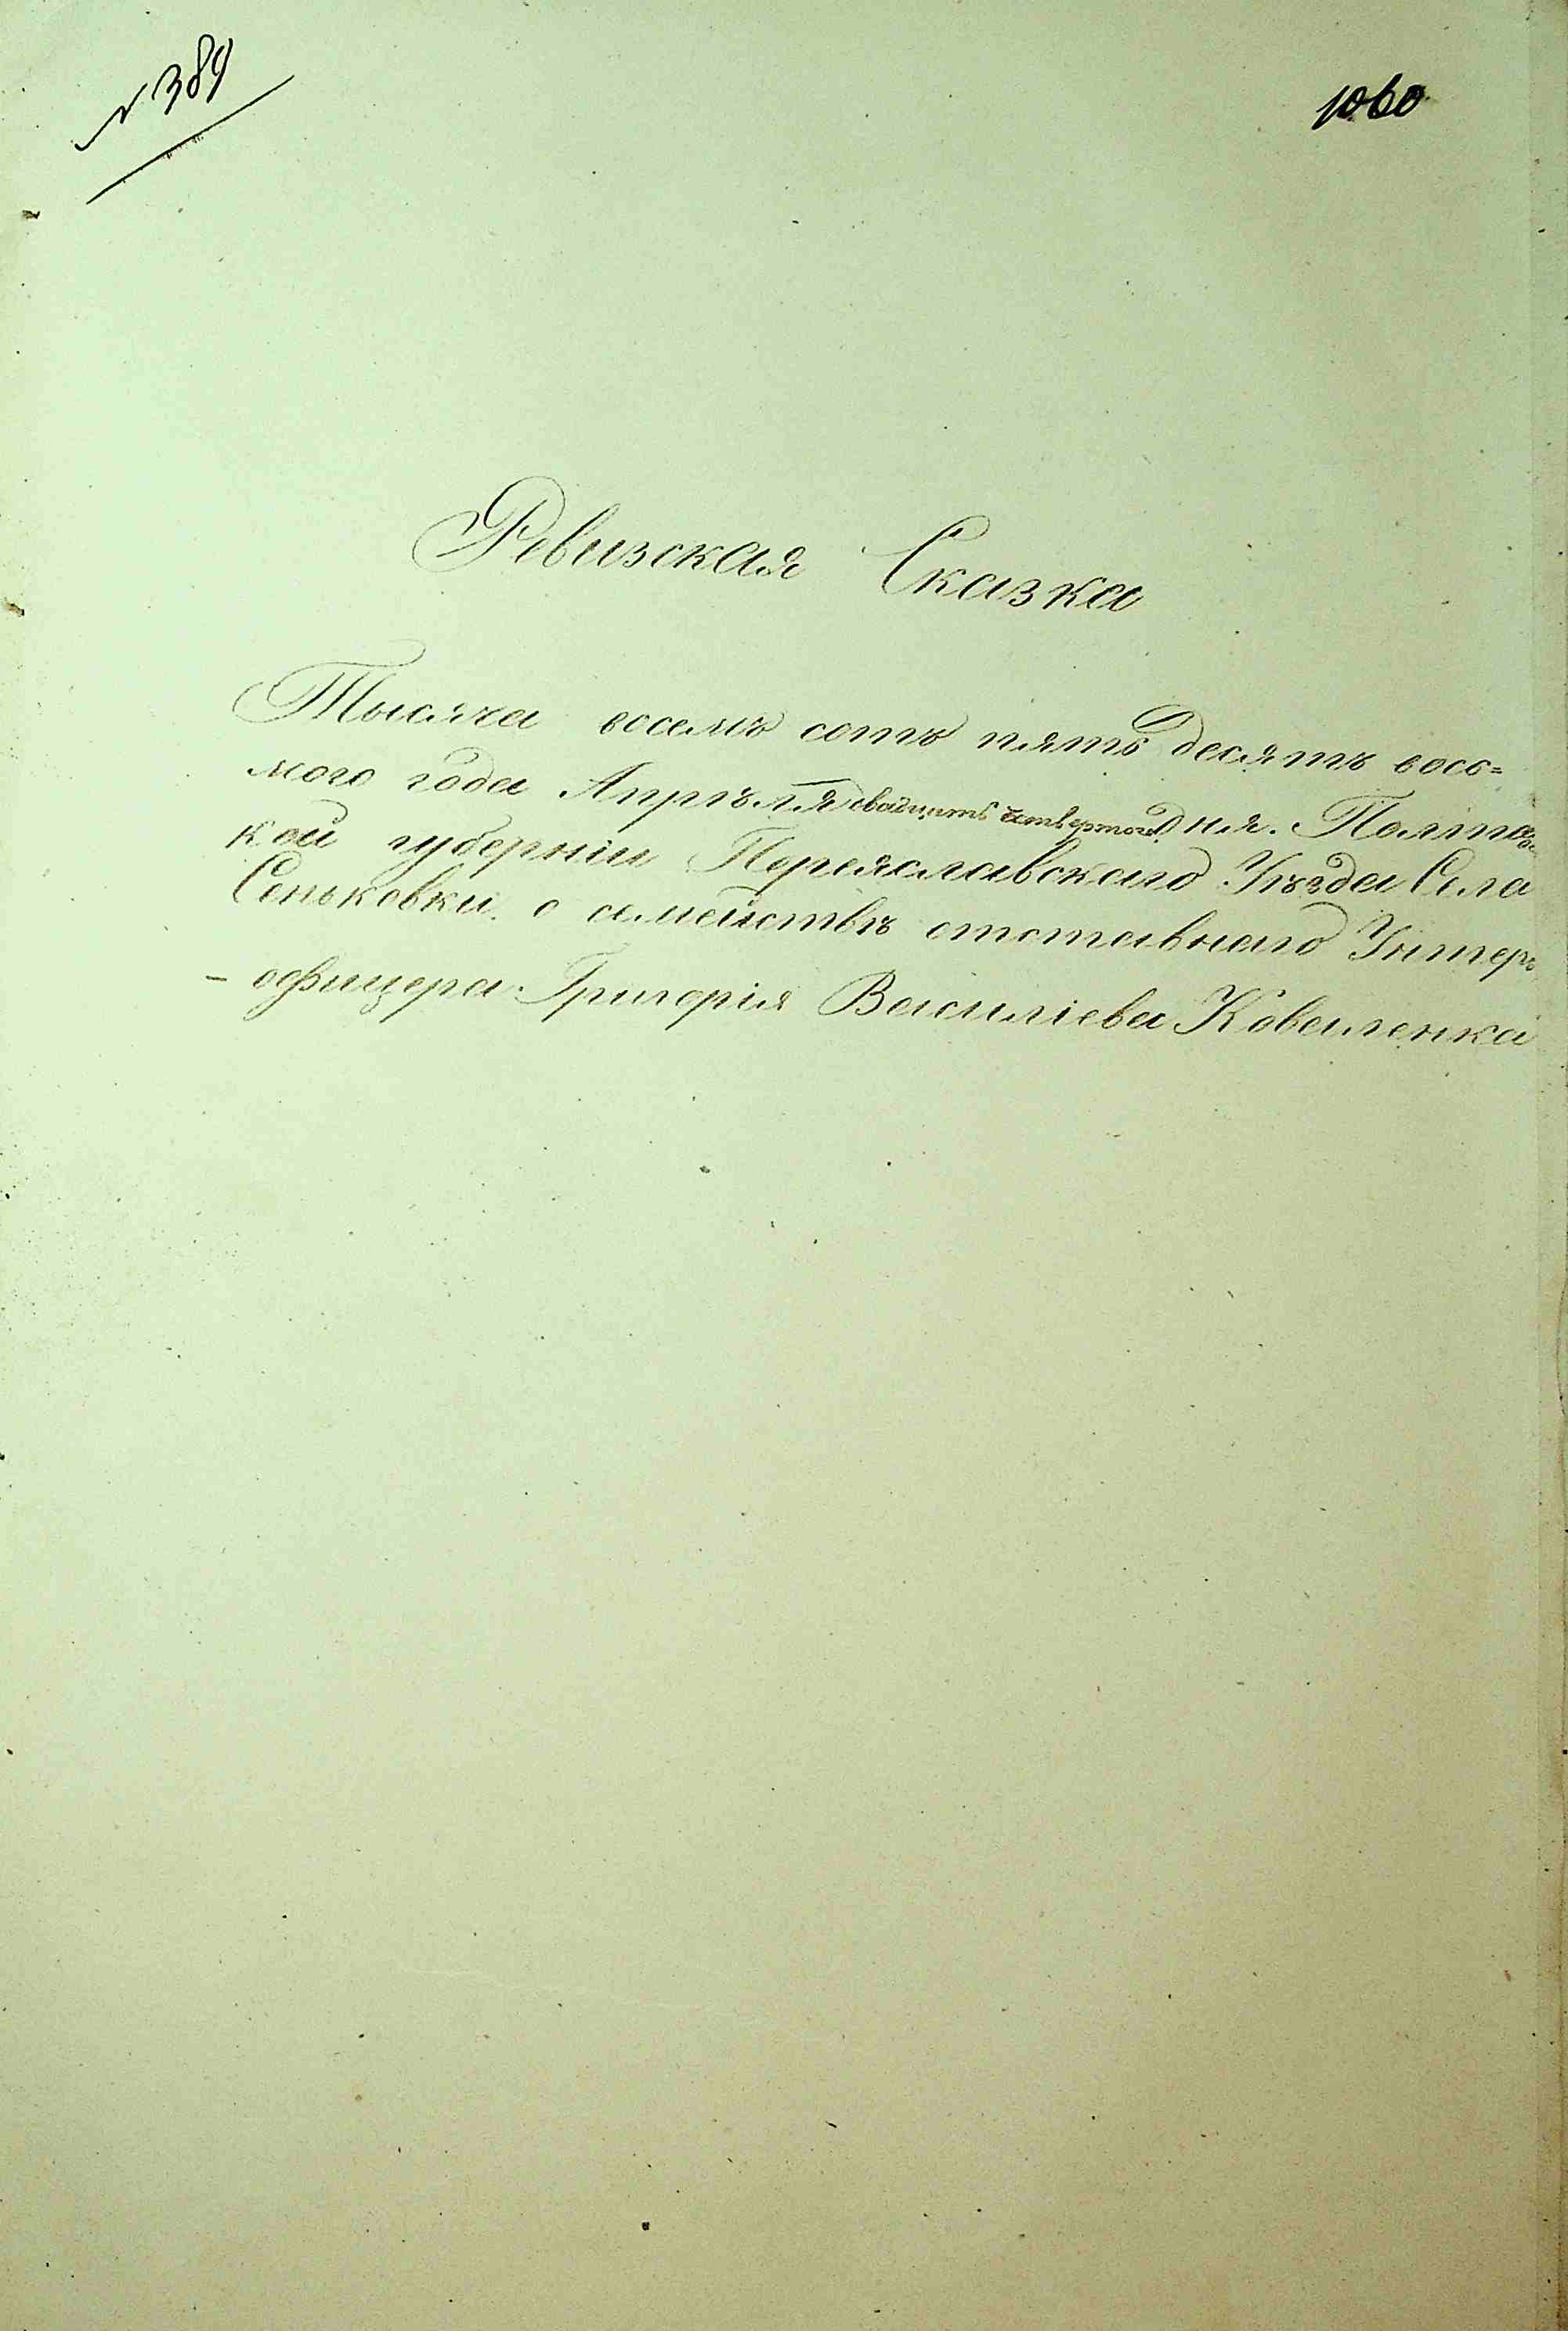 N 389
1060
Ревизская Сказка
Тысяча восемъ сотъ пять десятъ вось=
мого года Апрѣля двадцать четвертого дня. Полтавс=
кой губерніи Переяславскаго Уѣзда Села
Сеньковки о семействѣ отставнаго Унтеръ
- офицера Григорія Василіева Коваленка